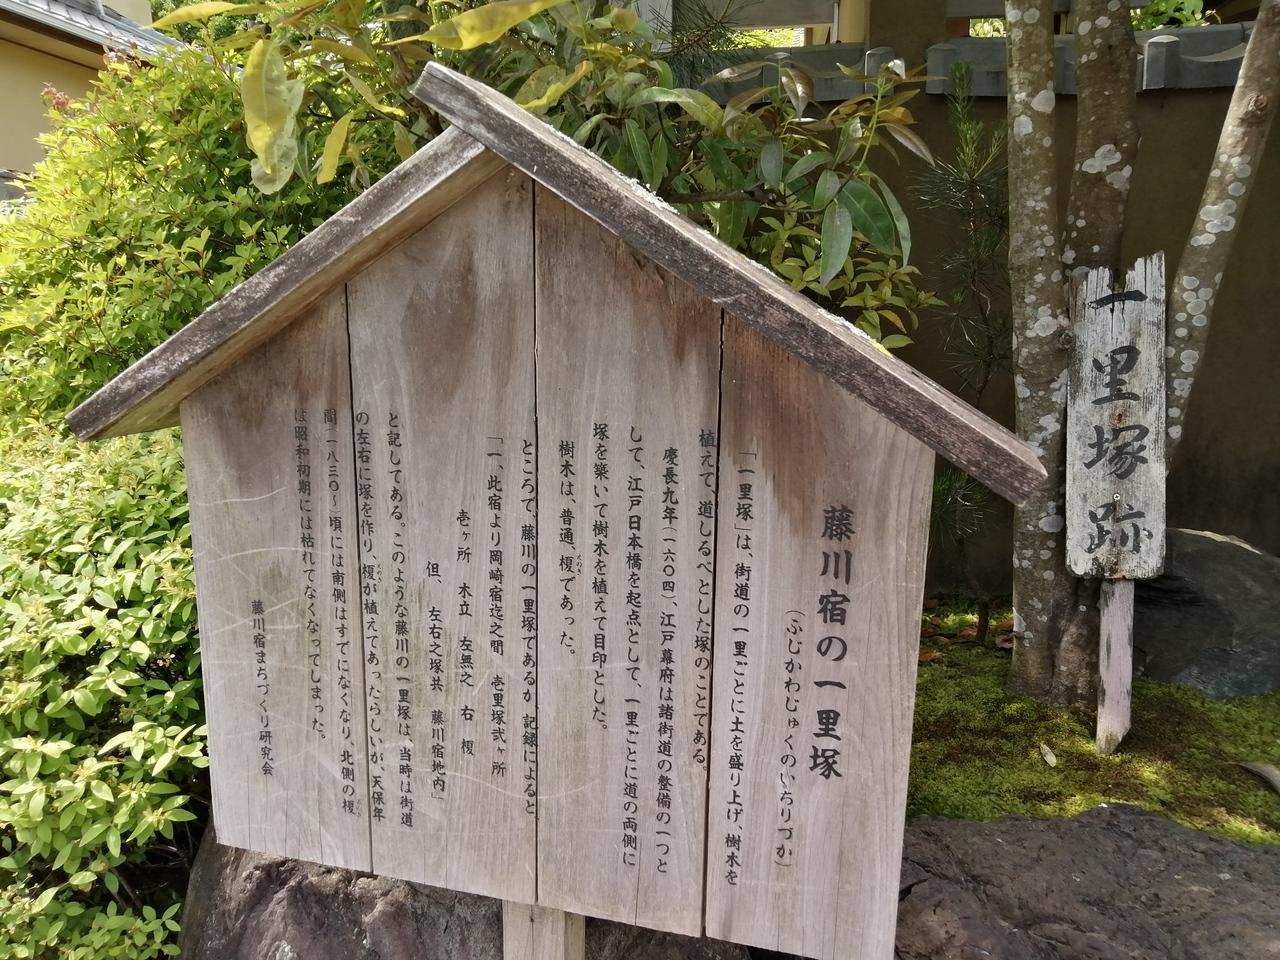 藤川宿の一里塚
(ふじかわじゅくのいちりづか)
「一里塚」は、街道の一里ごとに土を盛り上げ、樹木を
植えて、道しるべとした塚のことである。
慶長九年(一六〇四)、江戸幕府は諸街道の整備の一つと
して、江戸日本橋を起点として、一里ごとに道の両側に
塚を築いて樹木を植えて目印とした。
樹木は、普通、榎であった。
えのき
ところで、藤川の一里塚であるが、記録によると、
「一、此宿より岡崎宿迄之間 壱里塚弐ヶ所
壱ヶ所 木立 左無之 右 榎
但、 左右之塚共 藤川宿地内」
と記してある。このような藤川の一里塚は、当時は街道
の左右に塚を作り、榎が植えてあったらしいが、天保年
えのき
間(一八三〇〜)頃には南側はすでになくなり、北側の榎
えのき
は昭和初期には枯れてなくなってしまった。
藤川宿まちづくり研究会
一里塚跡